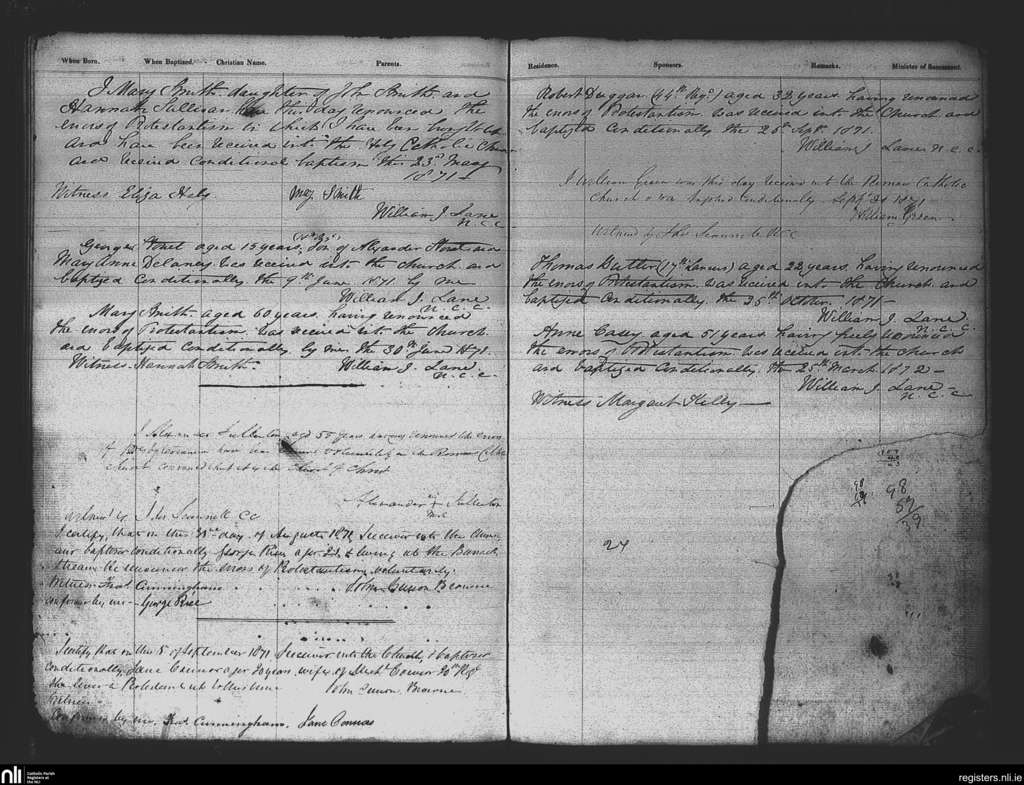 When Born. When Baptized. Christian Name. Parents.
I Mary Smith daughter of John Smith and
Hannah Sullivan have this day renounced the
errors of Protestantism in which I have been brought up
and have been received into the Holy Catholic Church
and received conditional baptism this 23rd May
1871
Witness Eliza Hely. Mary Smith
William J. Lane
N. C. C.
George aged 15 years, Son of Alexander and
Mary Anne Delaney was received into the church and
baptized Conditionally the 9th June 1871 by me
William J. Lane
N. C. C.
Mary Smith aged 60 years having renounced
the errors of Protestantism was received into the church
and baptized Conditionally by me the 30th June 1871.
Witness Hannah Smith. William J. Lane
N. C. C.
I Alexander Fullerton aged 55 years having renounced the errors
of have been voluntarily in the Roman Catholic
Church convinced that it is the Church of Christ
Alexander + Fullerton
mark
Witnessed by John Scannell CC
I certify, that on the 31st day of August 1871 I received into the Church
and baptized conditionally George Rice aged 23, & living at the
the errors of Protestantism voluntarily.
Witness Cunningham John Browne
confirmed by me George Rice
I certify that on the 5 of September 1871 I received into the Church, & baptized
conditionally Jane Connor aged 20 years wife of Connor 20th Regt
John Browne
Witness
Confirmed by me. Cunningham. Jane Connor
Residence. Sponsors. Remarks. Minister of Sacrament.
Robert Duggan (44th Regt.) aged 32 years having renounced
the errors of Protestantism was received into the Church and
baptized Conditionally the 25th Sept. 1871.
William J. Lane N. C. C.
I William Green was this day received into the Roman Catholic
Church & was baptised Conditionally Sept 1871
William Green
Witnessed by John Scannell CC
Thomas Butler (17th Lancers) aged 22 years having renounced
the errors of Protestantism was received into the Church and
baptized Conditionally the 25th October. 1871
William J. Lane
N. C. C.
Anne Casey aged 51 years having freely renounced
the errors of Protestantism was received into the church
and baptized Conditionally the 25th March 1872
William J. Lane
N. C. C.
Witness Margaret Kelly
24
98
52
39
nli Catholic Parish Registers at the NLI
registers.nli.ie